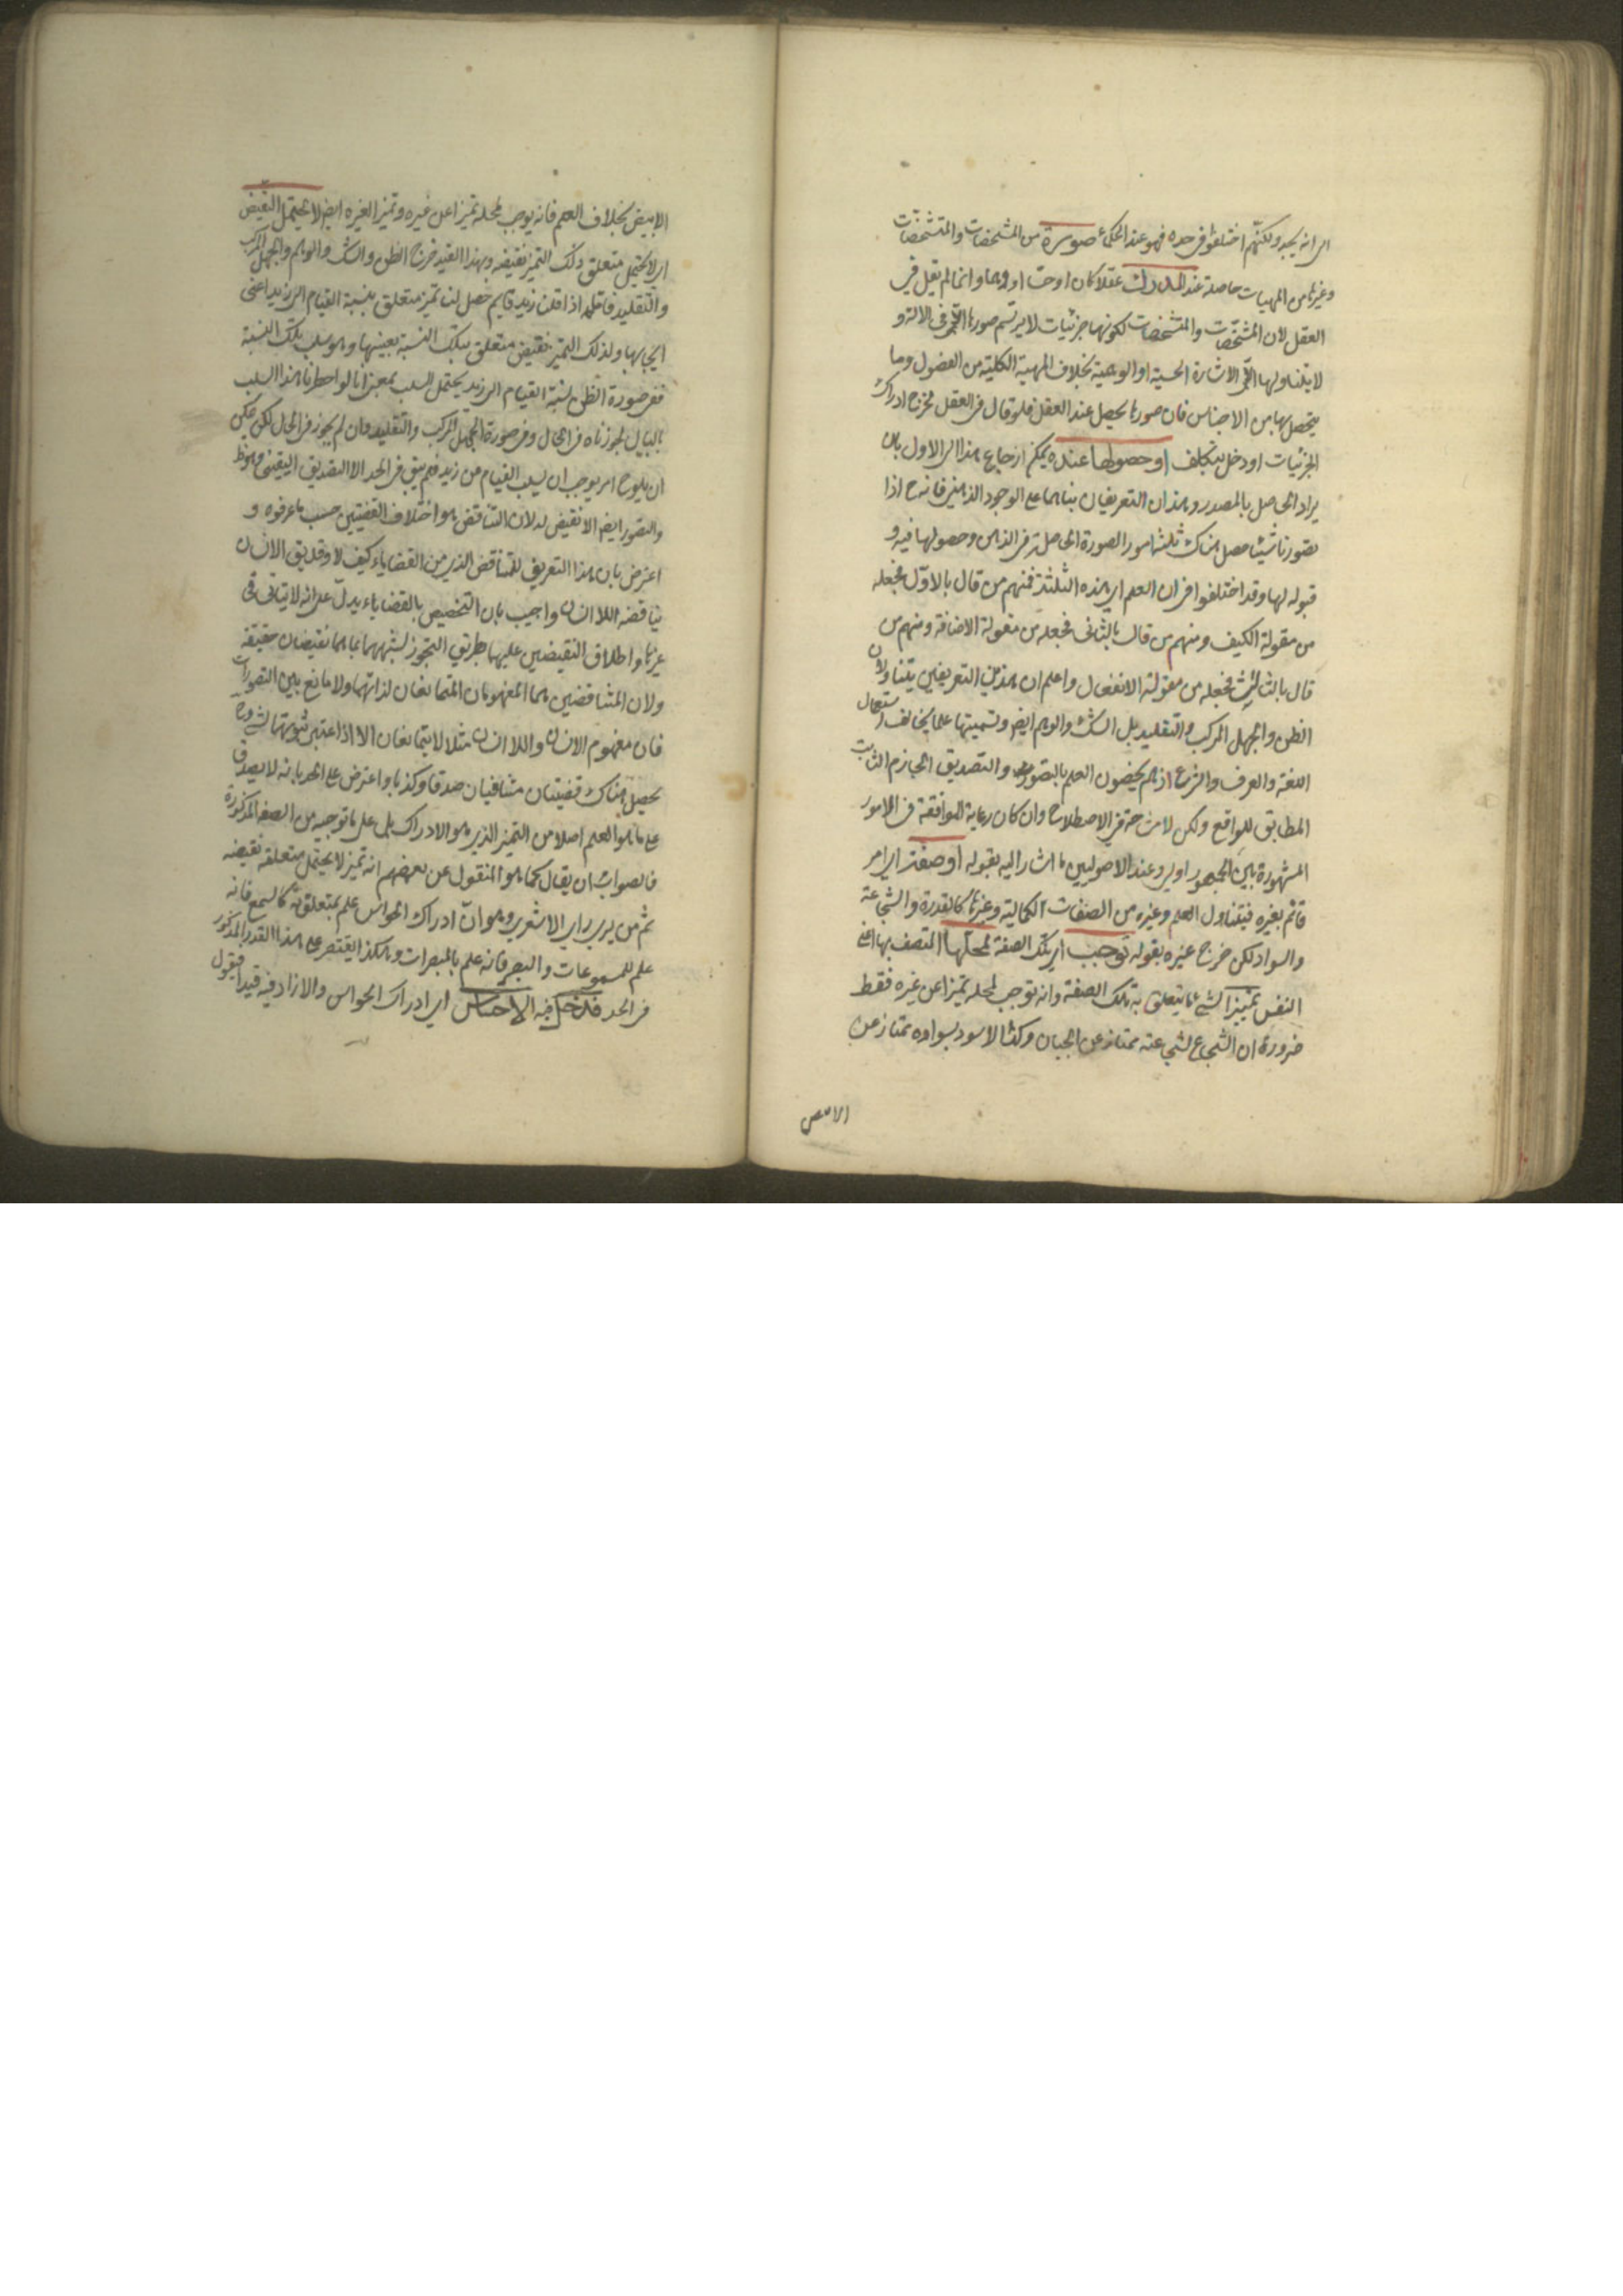 الى انه يحد ولكنهم اختلفوا فى حده فهو عند الحكماء صورة من المشخصات والمتشخصات
وغيرها من المهيات حاصلة عند المدرك عقلا كان او حسا او وهما وانما لم يقل فى
العقل لان المشخصات والمتشخصات لكونها جزئيات لا يرتسم صورها الا فى الالة و
لا يتناولها الا الاشارة الحسية او الوهمية بخلاف المهية الكلية من الفصول وما
يتحصل بها من الاجناس فان صورها يحصل عند العقل فلو قال فى العقل لخرج ادراك
الجزئيات او دخل بتكلف او حصولها عنده يمكن ارجاع هذا الى الاول بان
يراد الحاصل بالمصدر وهذان التعريفان بناهما على الوجود الذهنى فانه ح اذا
تصورنا شيئا حصل هناك ثلثة امور الصورة الحاصلة فى الذهن وحصولها فيه و
قبوله لها وقد اختلفوا فى ان العلم اى هذه الثلثة فمنهم من قال بالاول فجعله
من مقولة الكيف ومنهم من قال بالثانى فجعله من مقولة الاضافة ومنهم من
قال بالثالث فجعله من مقولة الانفعال واعلم ان هذين التعريفين يتناولان
الظن والجهل المركب والتقليد بل الشك والوهم ايض وتسميتها علما يخالف استعمال
اللغة والعرف والشرع اذ هم يخصون العلم بالتصور والتصديق الجازم الثابت
المطابق للواقع ولكن لا مشاحة فى الاصطلاح وان كان رعاية الموافقة فى الامور
المشهورة بين الجمهور اولى وعند الاصوليين ما اشار اليه بقوله او صفة اى امر
قائم بغيره فيتناول العلم وغيره من الصفات الكمالية وغيرها كالقدرة والشجاعة
والسواد لكن خرج غيره بقوله توجب اى تلك الصفة لمحلها المتصف بها اعنى
النفس تمييزا لشئ ما يتعلق به تلك الصفة وانه توجب لمحله تميزا عن غيره فقط
ضرورة ان الشجاع لشجاعته ممتاز عن الجبان وكذا الاسود بسواده ممتاز عن
الابيض
الابيض بخلاف العلم فانه يوجب لمحله تميزا عن غيره وتميزا لغيره ايض لا يحتمل النقيض
اى لا يحتمل متعلق ذلك التميز نقيضه وبهذا القيد خرج الظن والشك والوهم والجهل المركب
والتقليد فانه اذا قلنا زيد قايم حصل لنا تميز متعلق بنسبة القيام الى زيد اعنى
ايجابها ولذلك التميز نقيض متعلق بتلك النسبة بعينها وهو سلب تلك النسبة
ففى صورة الظن نسبة القيام الى زيد يحتمل السلب بمعنى انا لو اخطرنا هذا السلب
بالبال لجوزناه فى الحال وفى صورة الجهل المركب والتقليد وان لم يجوز فى الحال لكن يمكن
ان يلوح امر يوجب ان يسلب القيام من زيد فلم يبق فى الحد الا التصديق اليقينى وهو ظ
والتصور ايض لا نقيض له لان التناقض هو اختلاف القضيتين حسب ما عرفوه و
اعترض بان هذا التعريف للتناقض الذى من القضايا كيف لا وقد يق الانسان
يناقضه اللاانسان واجيب بان التخصيص بالقضايا يدل على انه لا يتاتى فى
غيرها واطلاق النقيضين عليهما بطريق التجوز لشبههما بما هما نقيضان حقيقة
ولان المتناقضين هما المفهومان المتمانعان لذاتهما ولا مانع بين التصورات
فان مفهوم الانسان واللاانسان مثلا لا يتمانعان الا اذا اعتبر ثبوتهما لشئ وح
يحصل هناك قضيتان متنافيان صدقا وكذبا واعترض على الحد بانه لا يصدق
على ما هو العلم اصلا من التميز الذى هو الادراك بل على ما توجبه من الصفة المذكورة
فالصواب ان يقال كما هو المنقول عن بعضهم انه تميز لا يحتمل متعلقه نقيضه
ثم من يرى راى الاشعرى وهو ان ادراك الحواس علم بمتعلقاته كالسمع فانه
علم للمسموعات والبصر فانه علم بالمبصرات وهكذا اقتصر على هذا القدر المذكور
فى الحد فدخل فيه الاحساس اى ادراك الحواس والا زاد فيه قيدا فيقول